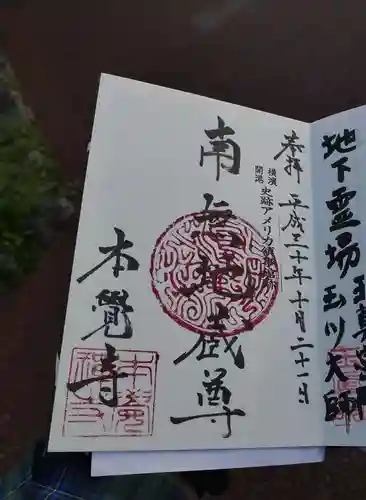 地下霊場
玉川大師
奉拝 平成三十年十月二十一日
横濱開港 史跡アメリカ領事館跡
南無地蔵尊
本覺寺